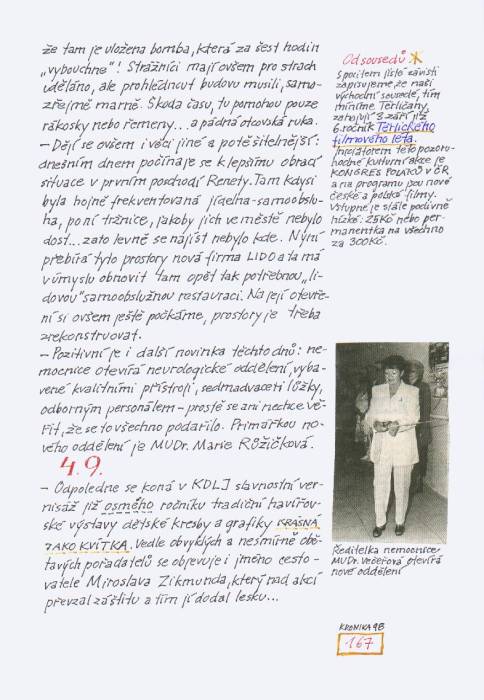 že tam je uložena bomba, která za šest hodin
„vybouchne"! Strážníci mají ovšem pro strach
uděláno, ale prohlédnut budovu musili, samo-
zřejmě marně. Škoda času, tu pomohou pouze
rákosky nebo řemeny... a pádná otcovská ruka.
– Dějí se ovšem i věci jiné a potěšitelnější:
dnešním dnem počínaje se k lepšímu obrací
situace v prvním poschodí Renety. Tam kdysi
byla hojně frekventovaná jídelna-samoobslu-
ha, po ní tržnice, jakoby jich ve městě nebylo
dost... zato levně se najíst nebylo kde. Nyní
přebírá tyto prostory nová firma LIDO a ta má
v úmyslu obnovit tam opět tak potřebnou „li-
dovou" samoobslužnou restauraci. Na její otevře-
ní si ovšem ještě počkáme, prostory je třeba
zrekonstruovat.
– Pozitivní je i další novinka těchto dnů: ne-
mocnice otevírá neurologické oddělení, vyba-
vené kvalitními přístroji, sedmadvaceti lůžky,
odborným personálem – prostě se ani nechce vě-
řit, že se to všechno podařilo. Primářkou no-
vého oddělení je MUDr. Marie RŮŽIČKOVÁ.
4.9.
– Odpoledne se koná v KDLJ slavnostní ver-
nisáž již osmého ročníku tradiční havířov-
ské výstavy dětské kresby a grafiky KRÁSNÁ
JAKO KVÍTKA. Vedle obvyklých a nesmírně obě-
tavých pořadatelů se objevuje i jméno cesto-
vatele Miroslava Zikmunda, který nad akcí
převzal záštitu a tím jí dodal lesku...
Od sousedů
S pocitem jisté závisti
zapisujeme, že naši
východní sousedé, tím
míníme Terličany,
zahajují 3. září již
6. ročník Těrlického
filmového léta.
Iniciátorem této pozoru-
hodné kulturní akce je
KONGRES POLÁKŮ V ČR
a na programu jsou nové
české a polské filmy.
Vstupné je stále podivně
nízké: 25Kč nebo per-
manentka na všechno
za 300Kč.
Ředitelka nemocnice
MUDr. Večeřová otevírá
nové oddělení
KRONIKA 98
167